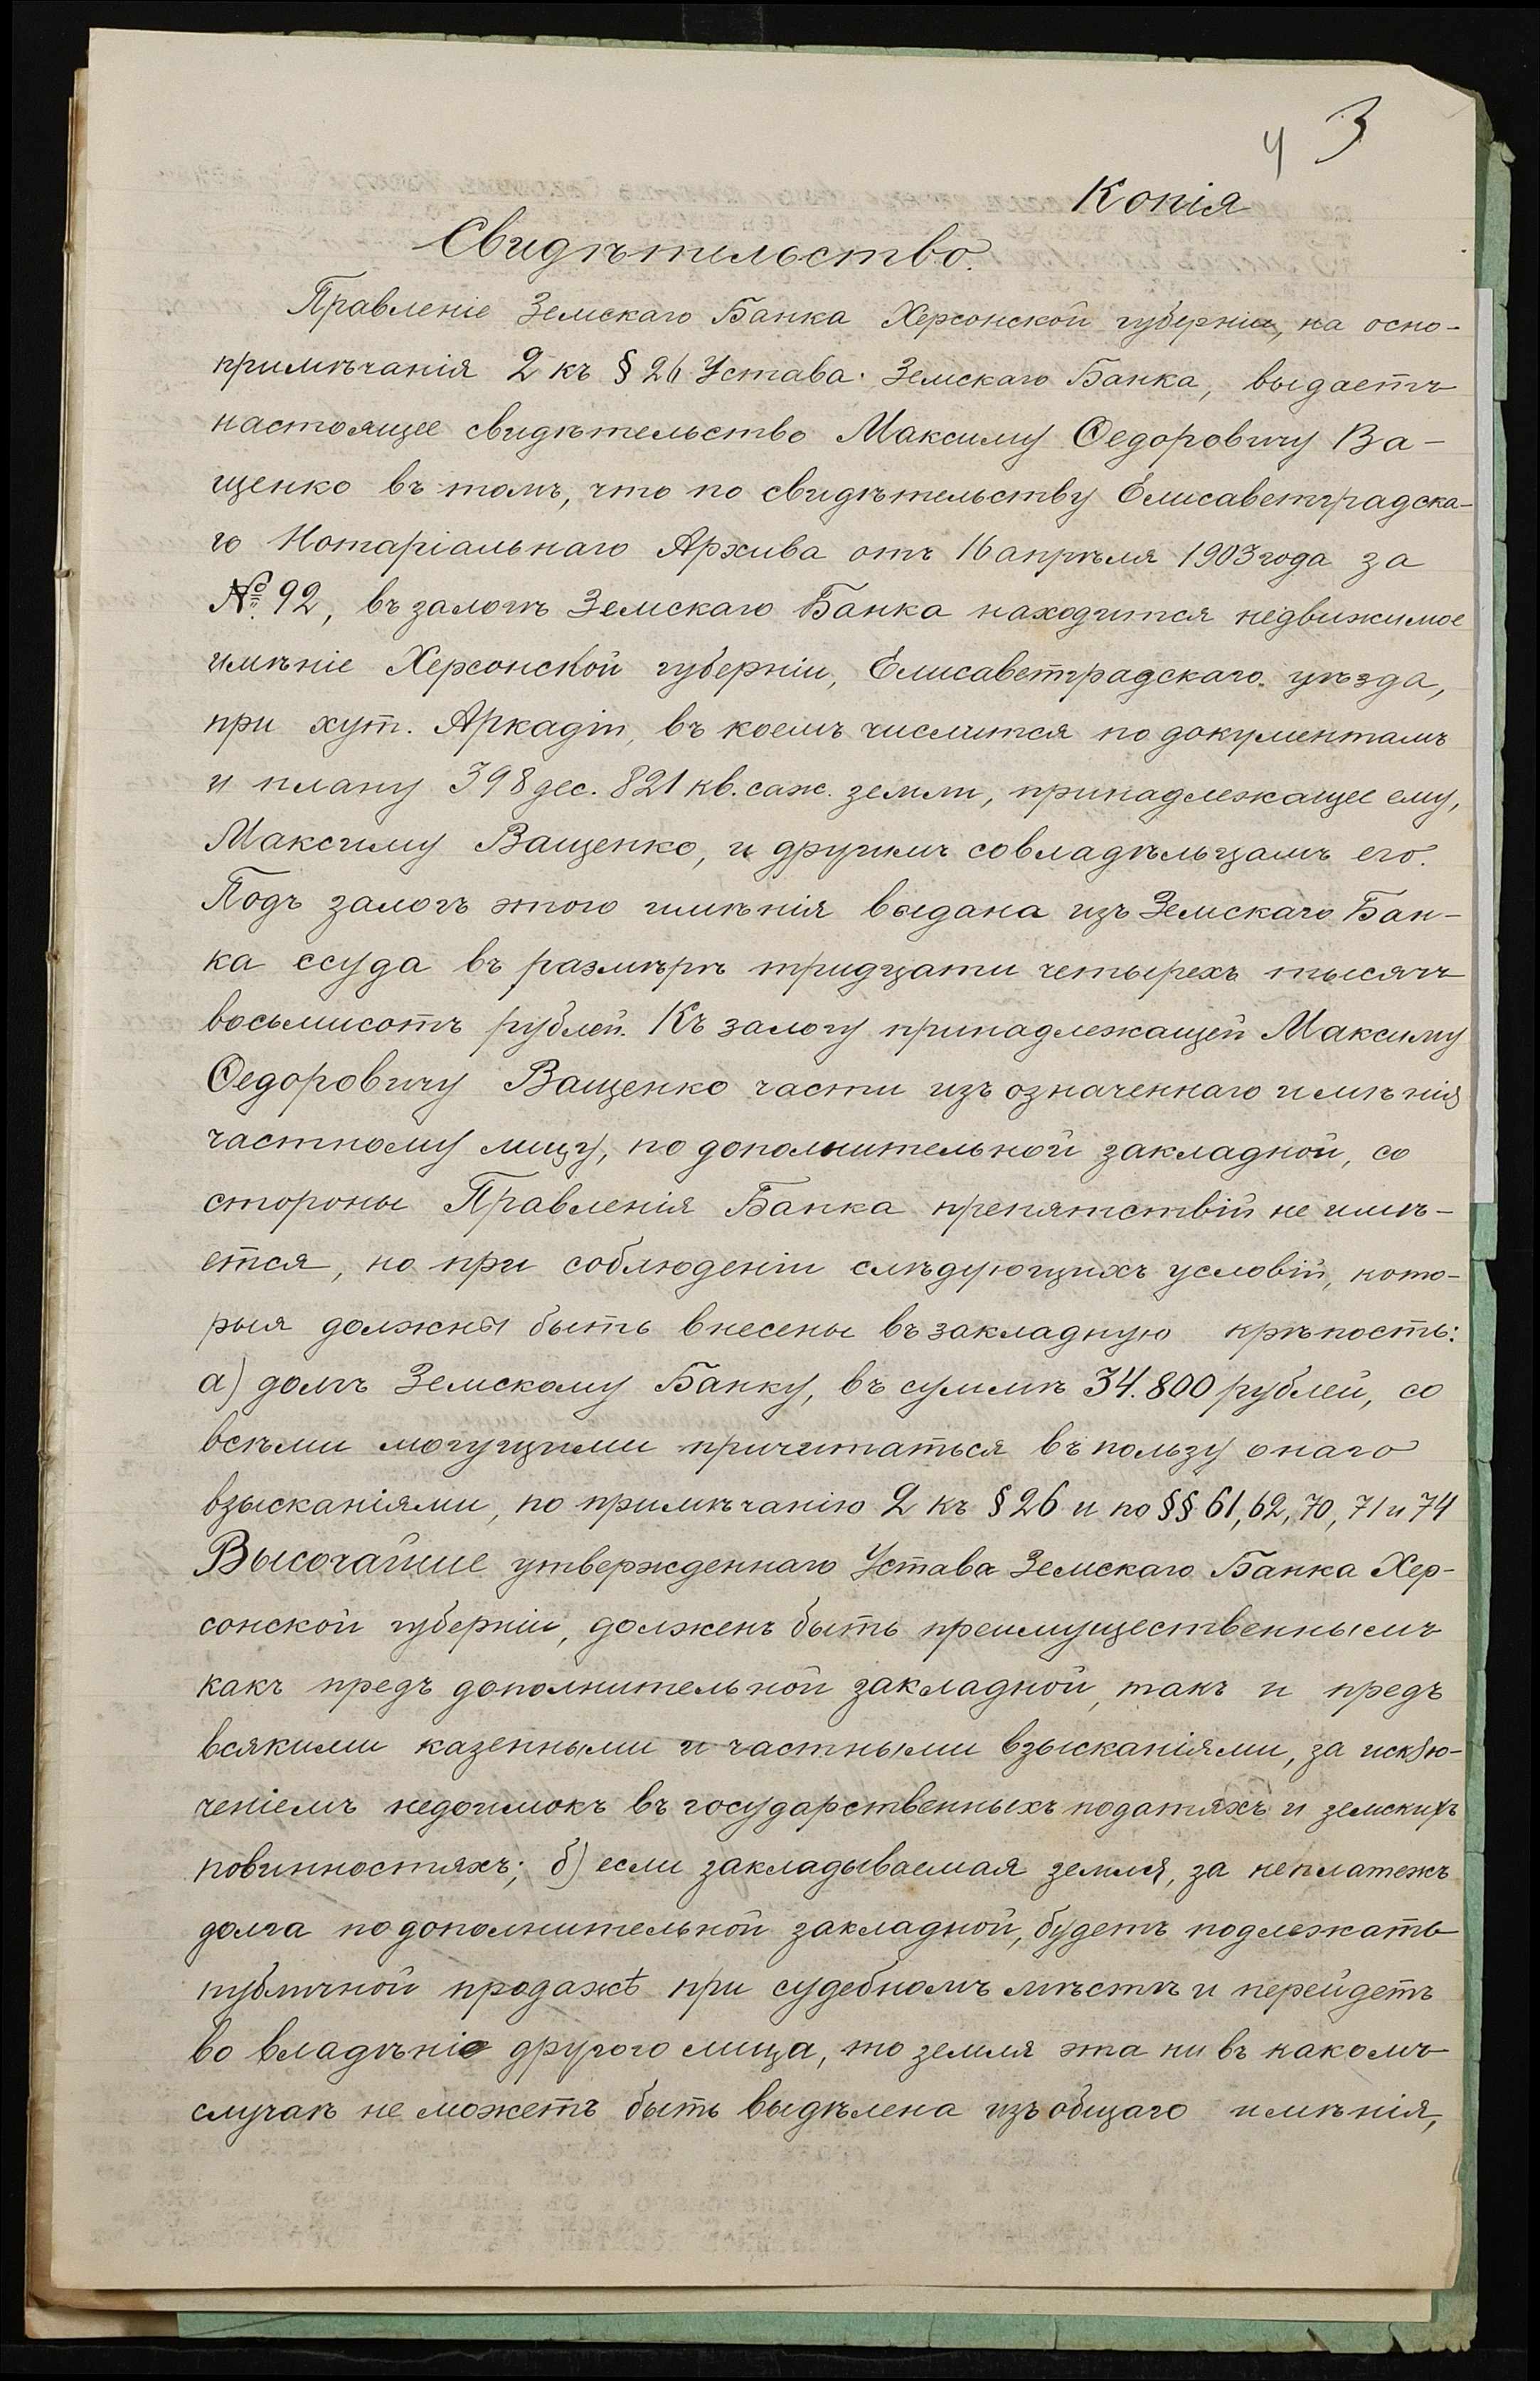 4 3
Копія
Свидѣтельство.
Правленіе Земскаго Банка Херсонской губерніи, на осно-
примѣчанія 2 къ § 26 Устава Земскаго Банка, выдаетъ
настоящее свидѣтельство Максиму Ѳедоровичу Ва-
щенко въ томъ, что по свидѣтельству Елисаветградска-
го Нотаріальнаго Архива отъ 16 апрѣля 1903 года за
№ 92, въ залогѣ Земскаго Банка находится недвижимое
имѣніе Херсонской губерніи, Елисаветградскаго уѣзда,
при хут. Аркадіи, въ коемъ числится по документамъ
и плану 398 дес. 821 кв. саж. земли, принадлежащее ему,
Максиму Ващенко, и другимъ совладѣльцамъ его.
Подъ залогъ этого имѣнія выдана изъ Земскаго Бан-
ка ссуда въ размѣрѣ тридцати четырехъ тысячъ
восьмисотъ рублей. Къ залогу принадлежащей Максиму
Ѳедоровичу Ващенко части изъ означеннаго имѣнія
частному лицу, по дополнительной закладной, со
стороны Правленія Банка препятствій не имѣ-
ется, но при соблюденіи слѣдующихъ условій, кото-
рыя должны быть внесены въ закладную крѣпость:
а) долгъ Земскому Банку, въ суммѣ 34.800 рублей, со
всѣми могущими причитаться въ пользу онаго
взысканіями, по примѣчанію 2 къ § 26 и по §§ 61, 62, 70, 71 и 74
Высочайше утвержденнаго Устава Земскаго Банка Хер-
сонской губерніи, долженъ быть преимущественнымъ
какъ предъ дополнительной закладной, такъ и предъ
всякими казенными и частными взысканіями, за исклю-
ченіемъ недоимокъ въ государственныхъ податяхъ и земскихъ
повинностяхъ; б) если закладываемая земля, за неплатежъ
долга по дополнительной закладной, будетъ подлежать
публичной продажѣ при судебномъ мѣстѣ и перейдетъ
во владѣніе другого лица, то земля эта ни въ какомъ
случаѣ не можетъ быть выдѣлена изъ общаго имѣнія,